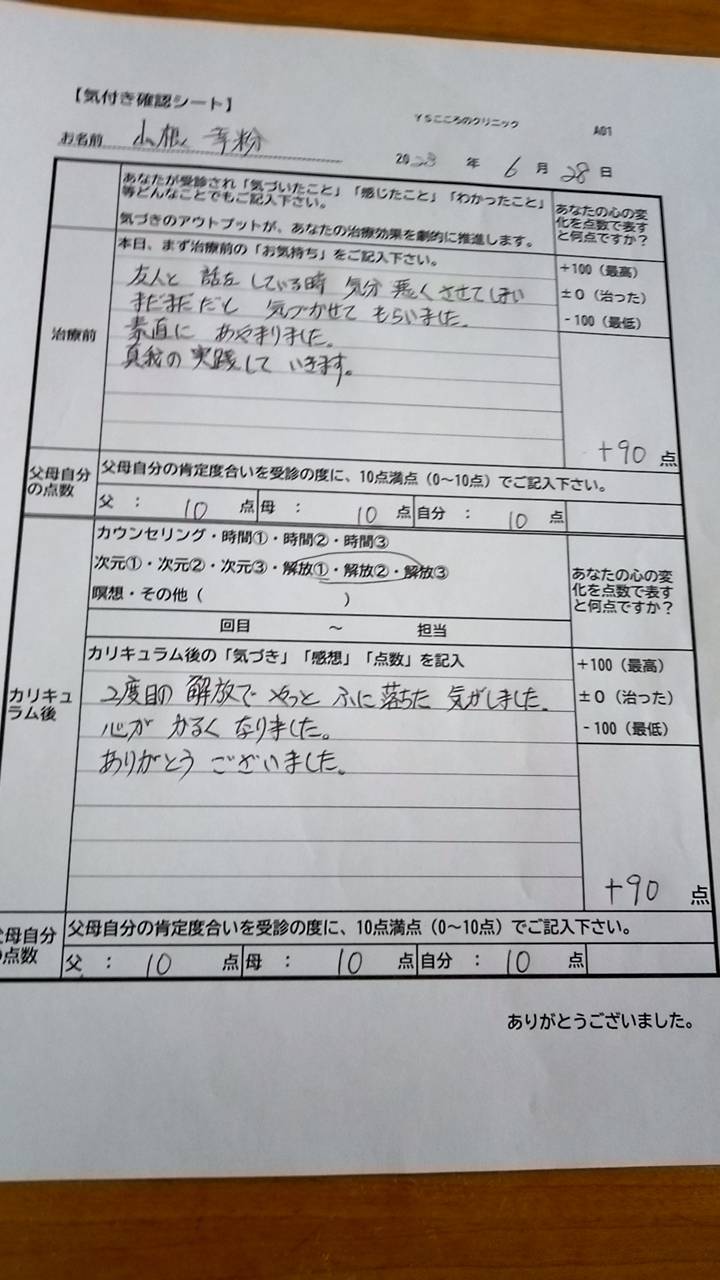 【気付き確認シート】
YSこころのクリニック
A01
お名前 山根
2023年 6月 28日
あなたが受診され「気づいたこと」「感じたこと」「わかったこと」
等どんなことでもご記入下さい。
気づきのアウトプットが、あなたの治療効果を劇的に推進します。
あなたの心の変
化を点数で表す
と何点ですか?
治療前
本日、まず治療前の「お気持ち」をご記入下さい。
友人と 話をしている時 気分 悪くさせてしまい
まだまだだと 気づかせて もらいました。
素直に あやまりました。
真我の 実践して いきます。
+100(最高)
±0(治った)
-100(最低)
+90 点
父母自分
の点数
父母自分の肯定度合いを受診の度に、10点満点(0~10点)でご記入下さい。
父 : 10 点 母 : 10 点 自分 : 10 点
カリキュ
ラム後
カウンセリング・時間①・時間②・時間③
次元①・次元②・次元③・解放①・解放②・解放③
瞑想・その他( )
回目 ~ 担当
あなたの心の変
化を点数で表す
と何点ですか?
カリキュラム後の「気づき」「感想」「点数」を記入
2度目の 解放で やっと ふに 落ちた 気がしました。
心が かるく なりました。
ありがとう ございました。
+100(最高)
±0(治った)
-100(最低)
+90 点
父母自分
の点数
父母自分の肯定度合いを受診の度に、10点満点(0~10点)でご記入下さい。
父 : 10 点 母 : 10 点 自分 : 10 点
ありがとうございました。